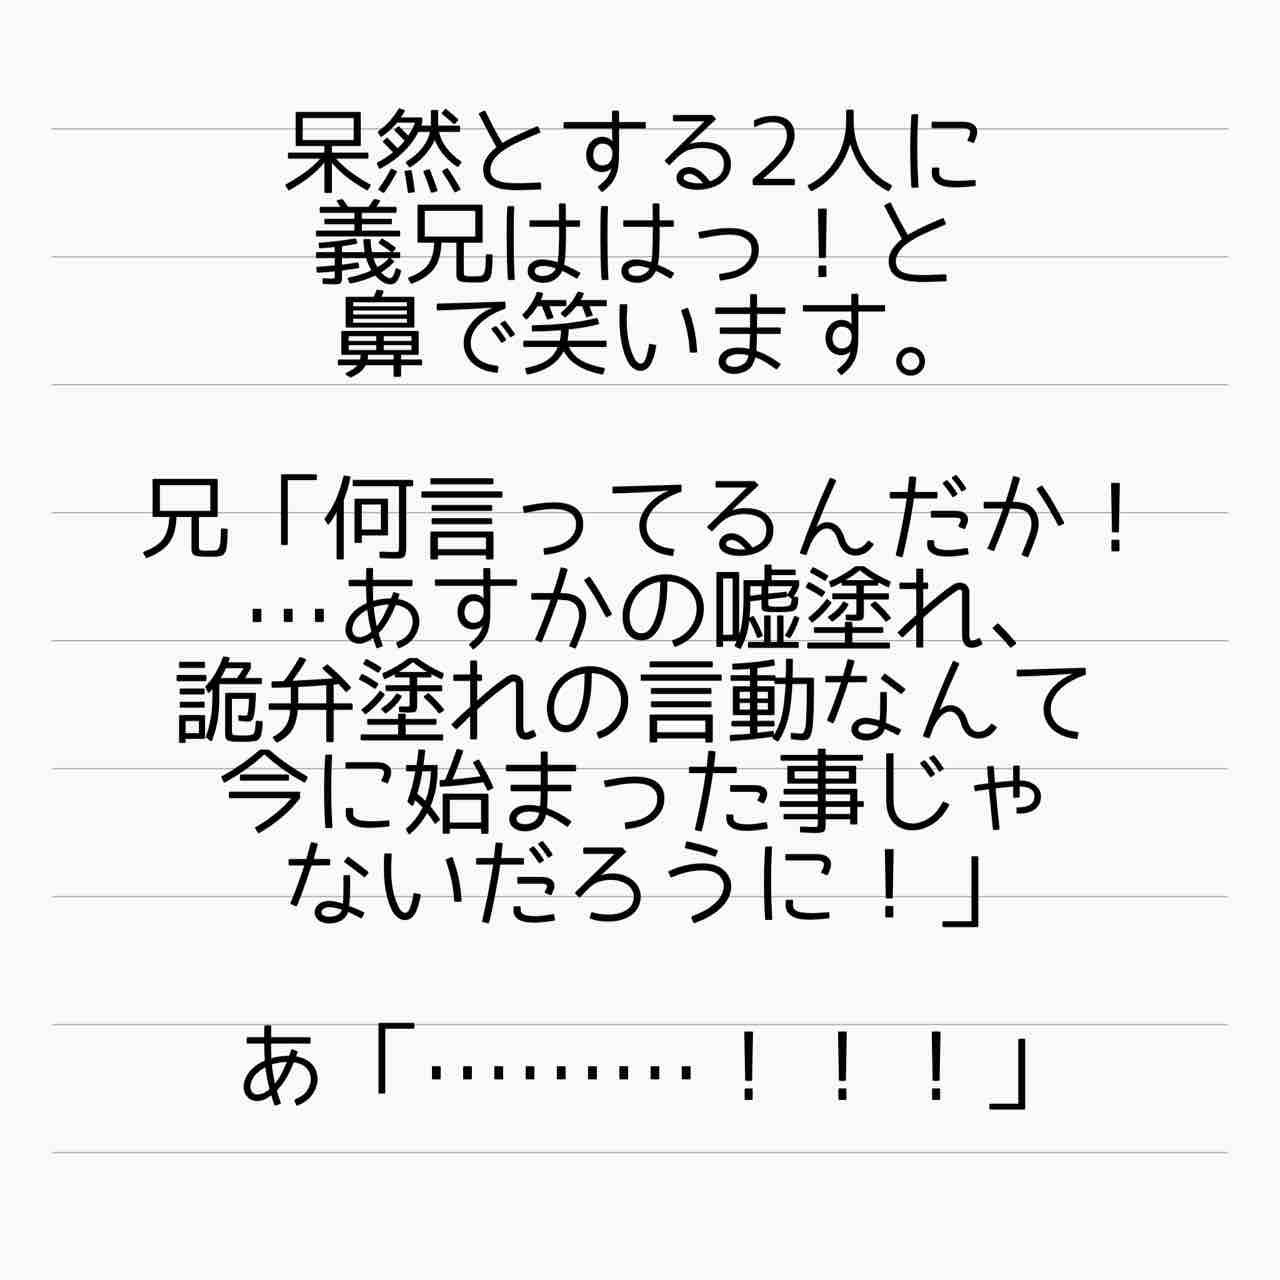 呆然とする2人に
義兄ははっ！と
鼻で笑います。
兄「何言ってるんだか！
…あすかの嘘塗れ、
詭弁塗れの言動なんて
今に始まった事じゃ
ないだろうに！」
あ「………！！！」